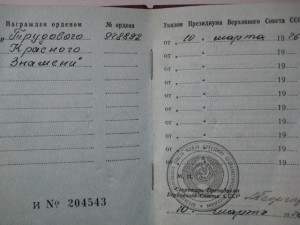 Награжден орденом
№ ордена
"Трудового
Красного
Знамени"
978892
И № 204543
Указом Президиума Верховного Совета СССР
от " 10 " марта 19 86
от " " 19
от " " 19
от " " 19
от " " 19
от " " 19
от " " 19
от " " 19
от " " 19
Секретарь Президиума
Верховного Совета СССР
" 10 " марта 19